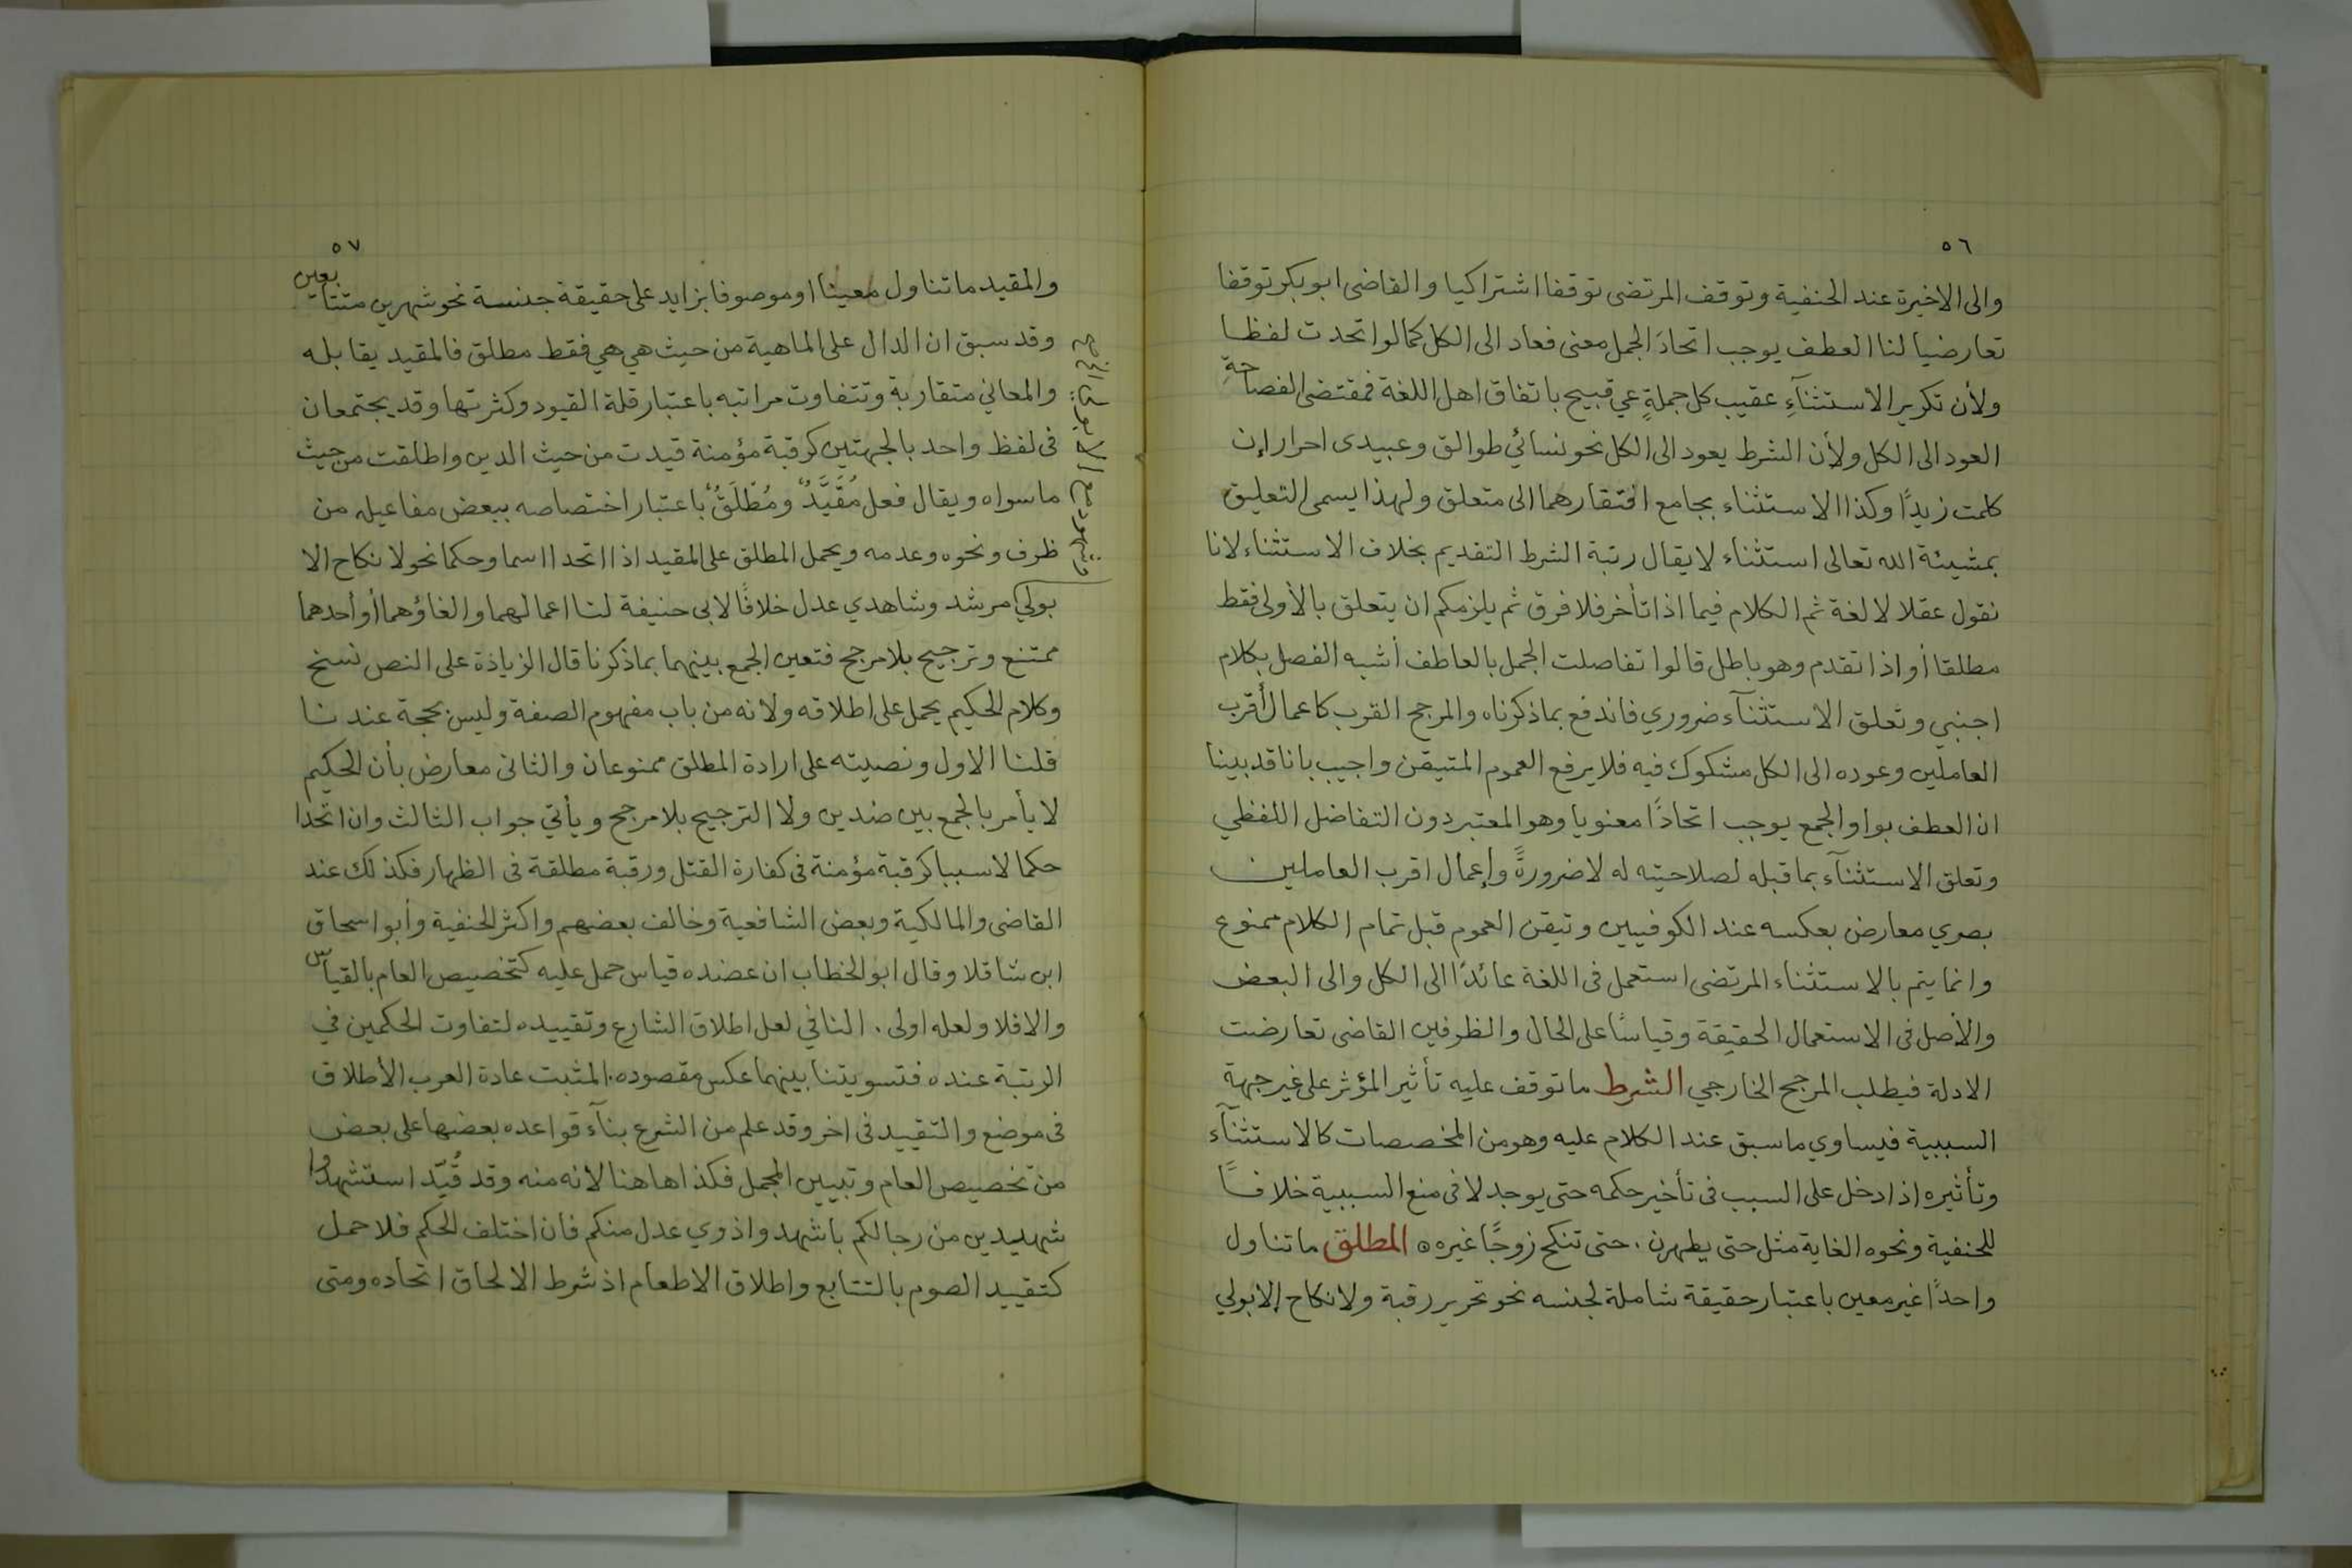 ٥٦
والى الاخيرة عند الحنفية وتوقف المرتضى توقفا اشتراكيا والقاضى ابو بكر توقفا
تعارضيا لنا العطف يوجب اتحادَ الجمل معنى فعاد الى الكل كما لو اتحدت لفظا
ولأن تكرير الاستثنآءِ عقيب كل جملةٍ عي قبيح باتفاق اهل اللغة فمقتضى الفصاحةِ
العود الى الكل ولأن الشرط يعود الى الكل نحو نسائي طوالق وعبيدى احرار إن
كلمت زيدًا وكذا الاستثناء بجامع افتقارهما الى متعلق ولهذا يسمى التعليق
بمشيئة الله تعالى استثناء لا يقال رتبة الشرط التقديم بخلاف الاستثناء لانا
نقول عقلا لا لغة ثم الكلام فيما اذا تأخر فلا فرق ثم يلزمكم ان يتعلق بالأولى فقط
مطلقا أو اذا تقدم وهو باطل قالوا تفاصلت الجمل بالعاطف أشبه الفصل بكلام
اجنبي وتعلق الاستثنآء ضروري فاندفع بما ذكرناه والمرجح القرب كاعمال أقرب
العاملين وعوده الى الكل مشكوك فيه فلا يرفع العموم المتيقن واجيب بانا قد بينا
ان العطف بواو الجمع يوجب اتحادًا معنويا وهو المعتبر دون التفاضل اللفظي
وتعلق الاستثنآء بما قبله لصلاحيته له لا ضرورةً وإعمال اقرب العاملين
بصري معارض بعكسه عند الكوفيين وتيقن العموم قبل تمام الكلام ممنوع
وانما يتم بالاستثناء المرتضى استعمل فى اللغة عائدًا الى الكل والى البعض
والأصل فى الاستعمال الحقيقة وقياسًا على الحال والظرفين القاضى تعارضت
الادلة فيطلب المرجح الخارجي الشرط ما توقف عليه تأثير المؤثر على غير جهة
السببية فيساوي ما سبق عند الكلام عليه وهو من المخصصات كالاستثنآء
وتأثيره اذا دخل على السبب فى تأخير حكمه حتى يوجد لا فى منع السببية خلافًا
للحنفية ونحوه الغاية مثل حتى يطهرن . حتى تنكح زوجًا غيره ه المطلق ما تناول
واحدًا غير معين باعتبار حقيقة شاملة لجنسه نحو تحرير رقبة ولا نكاح إلا بولي
٥٧
والمقيد ما تناول معينا او موصوفا بزايد على حقيقة جنسة نحو شهرين متتابعين
وقد سبق ان الدال على الماهية من حيث هي هي فقط مطلق فالمقيد يقابله
والمعاني متقاربة وتتفاوت مراتبه باعتبار قلة القيود وكثرتها وقد يجتمعان
فى لفظ واحد بالجهتين كرقبة مؤمنة قيدت من حيث الدين واطلقت من حيث
ما سواه ويقال فعل مُقَيَّدٌ ومُطْلَقٌ باعتبار اختصاصه ببعض مفاعيله من
ظرف ونحوه وعدمه ويحمل المطلق على المقيد اذا اتحدا اسما وحكما نحو لا نكاح الا
بولي مرشد وشاهدي عدل خلافًا لابى حنيفة لنا اعمالهما والغاؤهما أو أحدهما
ممتنع وترجيح بلا مرجح فتعين الجمع بينهما بما ذكرنا قال الزيادة على النص نسخ
وكلام الحكيم يحمل على اطلاقه ولانه من باب مفهوم الصفة وليس بحجة عندنا
قلنا الاول ونصيته على ارادة المطلق ممنوعان والثانى معارض بأن الحكيم
لا يأمر بالجمع بين ضدين ولا الترجيح بلا مرجح ويأتي جواب الثالث وان اتحدا
حكما لا سببا كرقبة مؤمنة فى كفارة القتل ورقبة مطلقة فى الظهار فكذلك عند
القاضى والمالكية وبعض الشافعية وخالف بعضهم واكثر الحنفية وأبو اسحاق
ابن شاقلا وقال ابو الخطاب ان عضده قياس حمل عليه كتخصيص العام بالقياس
والا فلا ولعله اولى . النافي لعل اطلاق الشارع وتقييده لتفاوت الحكمين في
الرتبة عنده فتسويتنا بينهما عكس مقصوده . المثبت عادة العرب الأطلاق
فى موضع والتقييد فى اخر وقد علم من الشرع بنآء قواعده بعضها على بعض
من تخصيص العام وتبيين المجمل فكذا هاهنا لانه منه وقد قُيّد استشهدوا
شهيدين من رجالكم باشهدوا ذوي عدل منكم فان اختلف الحكم فلا حمل
كتقييد الصوم بالتتابع واطلاق الاطعام اذ شرط الالحاق اتحاده ومتى